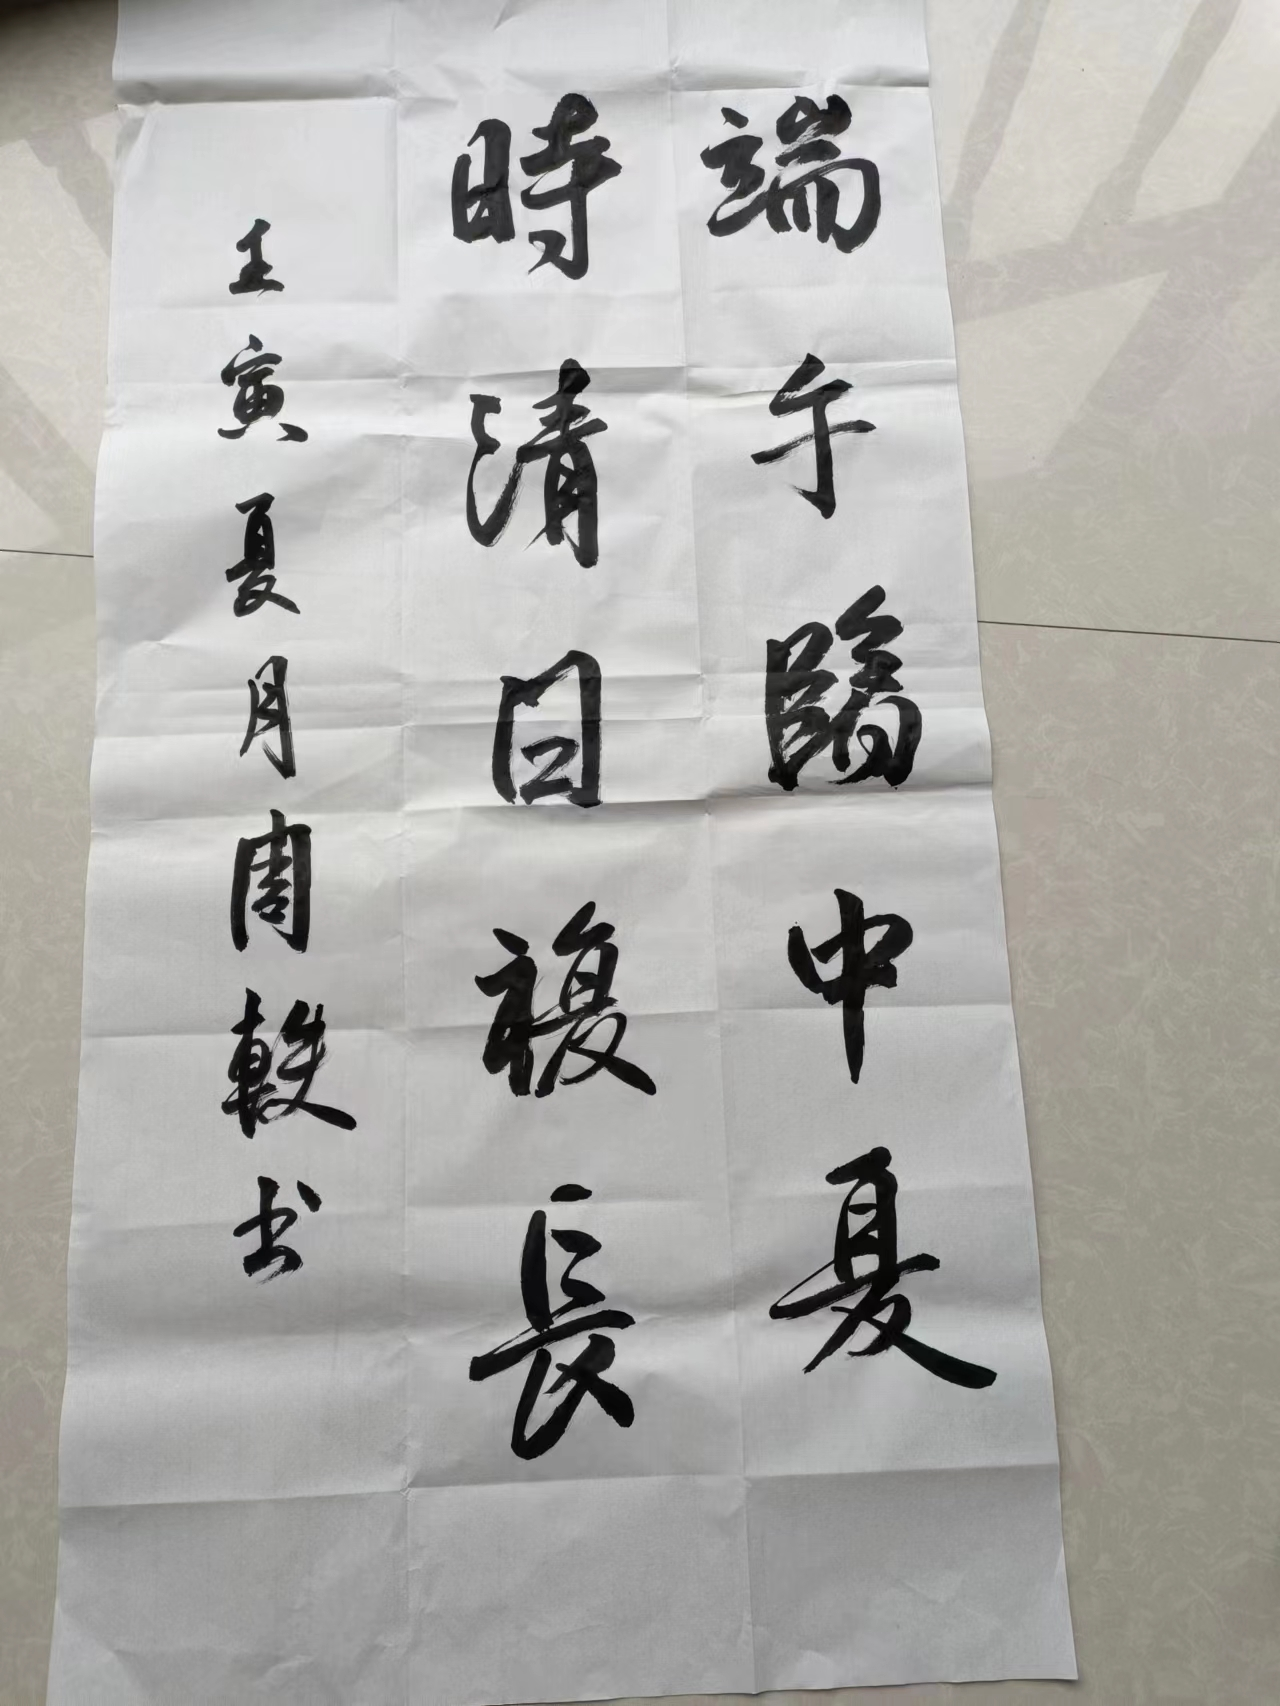 端午臨中夏
時清日複長
壬寅夏月周軼书